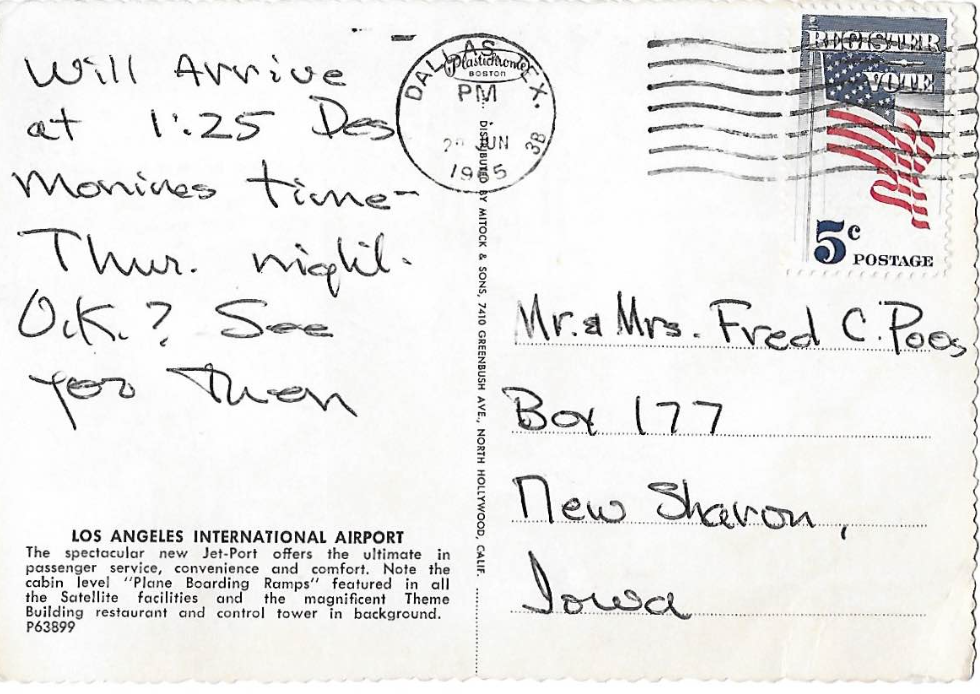 Will Arrive
at 1:25 Des
Monines time-
Thur. night.
O.K.? See
you then
LOS ANGELES INTERNATIONAL AIRPORT
The spectacular new Jet-Port offers the ultimate in
passenger service, convenience and comfort. Note the
cabin level "Plane Boarding Ramps" featured in all
the Satellite facilities and the magnificent Theme
Building restaurant and control tower in background.
P63899
DALLAS TEX.
PM
JUN
1965
3B
Plastichrome
BOSTON
DISTRIBUTED BY MITOCK & SONS, 7410 GREENBUSH AVE., NORTH HOLLYWOOD, CALIF.
REGISTER
VOTE
5c POSTAGE
Mr. & Mrs. Fred C. Poos
Box 177
New Sharon,
Iowa